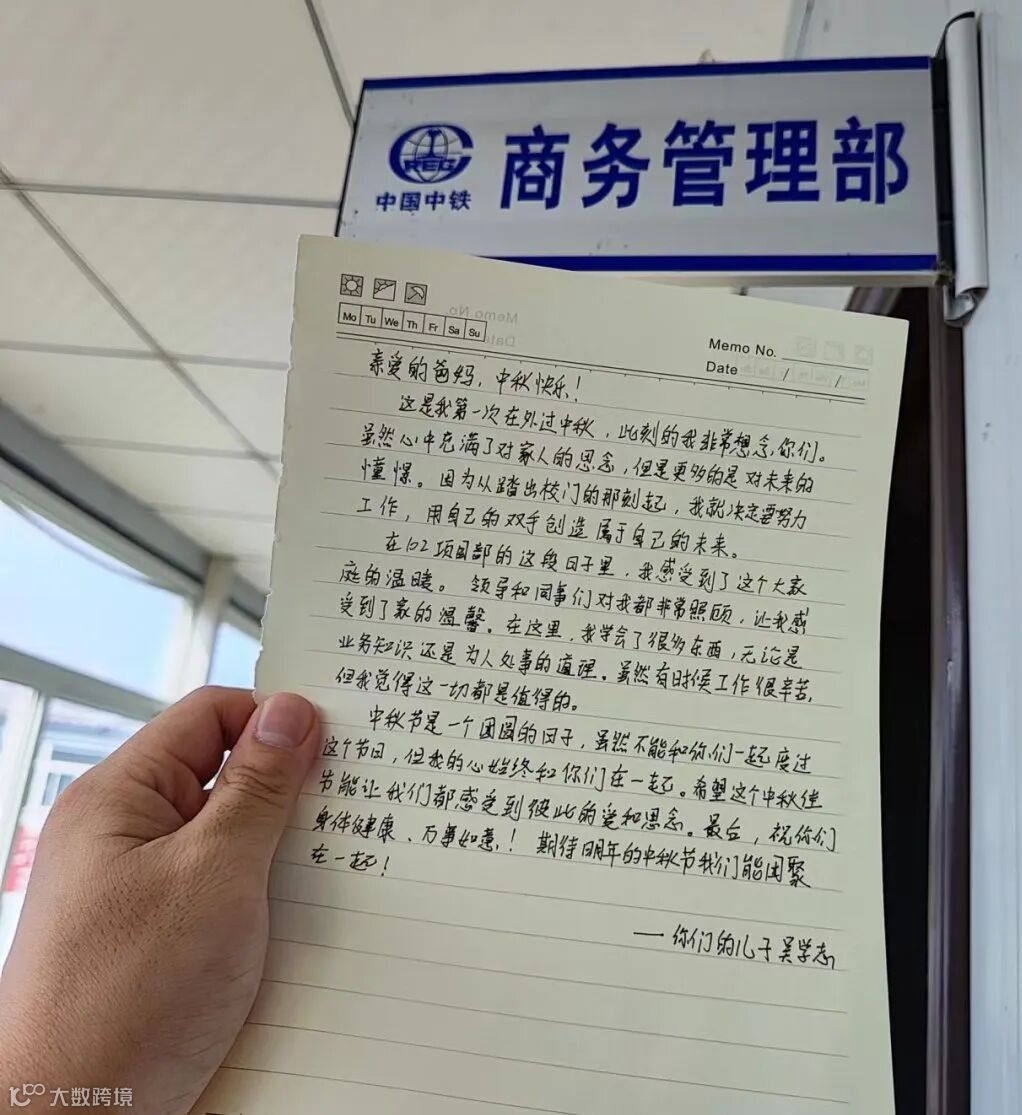 CREG
中国中铁
商务管理部
Mo Tu We Th Fr Sa Su
Memo No.
Date / /
亲爱的爸妈，中秋快乐！
这是我第一次在外过中秋，此刻的我非常想念你们。
虽然心中充满了对家人的思念，但是更多的是对未来的
憧憬。因为从踏出校门的那刻起，我就决定要努力
工作，用自己的双手创造属于自己的未来。
在102项目部的这段日子里，我感受到了这个大家
庭的温暖。领导和同事们对我都非常照顾，让我感
受到了家的温馨。在这里，我学会了很多东西，无论是
业务知识还是为人处事的道理。虽然有时候工作很辛苦，
但我觉得这一切都是值得的。
中秋节是一个团圆的日子，虽然不能和你们一起度过
这个节日，但我的心始终和你们在一起。希望这个中秋佳
节能让我们都感受到彼此的爱和思念。最后，祝你们
身体健康、万事如意！期待明年的中秋节我们能团聚
在一起！
——你们的儿子吴学志
大数跨境